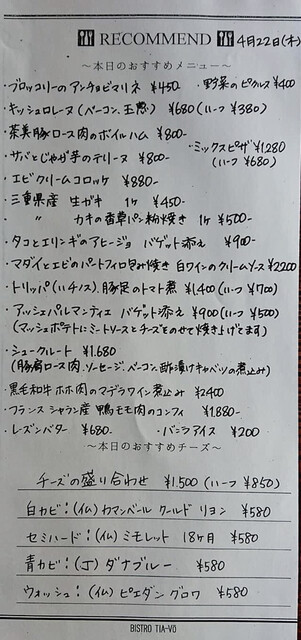 RECOMMEND 4月22日(木)
～本日のおすすめメニュー～
・ブロッコリーのアンチョビマリネ ¥450 ・野菜のピクルス ¥400
・キッシュロレーヌ (ベーコン、玉葱) ¥680 (ハーフ ¥380)
・茶美豚ロース肉のボイルハム ¥800-
・サバとじゃが芋のテリーヌ ¥800- ・ミックスピザ ¥1,280 (ハーフ ¥680)
・エビクリームコロッケ ¥880-
・三重県産 生ガキ 1ケ ¥450-
・ 〃 カキの香草パン粉焼き 1ケ ¥500-
・タコとエリンギのアヒージョ バゲット添え ¥900-
・マダイとエビのパートフィロ包み焼き 白ワインのクリームソース ¥2200
・トリッパ(ハチノス)、豚足のトマト煮 ¥1,400 (ハーフ ¥700)
・アッシェパルマンティエ バゲット添え ¥900 (ハーフ ¥500)
(マッシュポテトにミートソースとチーズをのせて焼き上げてます)
・シュークルート ¥1.680
(豚肩ロース肉、ソーセージ、ベーコン、酢漬けキャベツの煮込み)
・黒毛和牛ホホ肉のマデラワイン煮込み ¥2400
・フランス シャラン産 鴨モモ肉のコンフィ ¥1.880-
・レーズンバター ¥680 ・バニラアイス ¥200
～本日のおすすめチーズ～
チーズの盛り合わせ ¥1.500 (ハーフ ¥850)
白カビ：(仏) カマンベール クールド リヨン ¥580
セミハード：(仏) ミモレット 18ヶ月 ¥580
青カビ：(J) ダナブルー ¥580
ウォッシュ：(仏) ピエダングロワ ¥580
BISTRO TIA-Vö